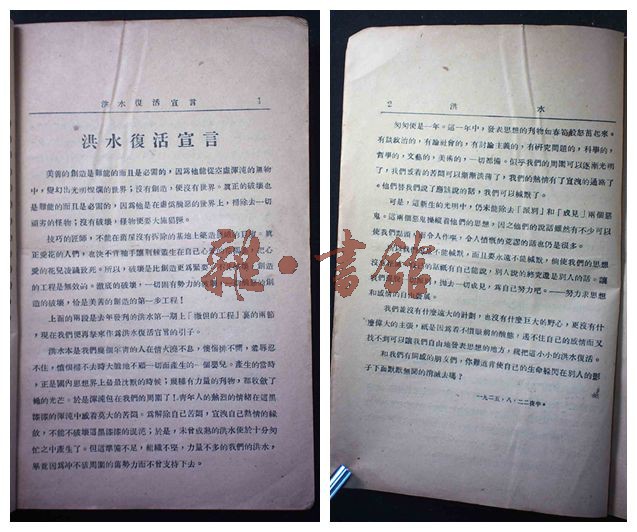 洪水復活宣言
1
洪水復活宣言
美善的創造是難能的而且是必需的,因為他能從空虛渾沌的無物
中,變幻出光明燦爛的世界;沒有創造,便沒有世界。真正的破壞也
是難能的而且是必需的,因為他是在虛偽醜惡的世界上,掃除去一切
頑劣的怪物;沒有破壞,怪物要大施猖獗。
技巧的匠師,不能在舊屋沒有拆除的基地上
正愛花的人們,也決不肯袖手讓荊棘叢生在自己心
心愛的花兒淩讓致死。所以,破壞是比創造更為緊要
的工程是無效的。徹底的破壞,一切固有勢力的
造的破壞,恰是美善的創造的第一步工程!
上面的兩段是去年發刊的洪水第一期上「撒但的工程」裏的兩節
,現在我們便再拏來作為洪水復活宣言的引子。
洪水本是我們幾個不肯的人在情火澆不息,懷惱排不開,羞辱忍
不住,憤恨掃不去時大膽地不顧一切而產生的一個嬰兒。產生的當時
,正是國內思想界上最最沈默的時候;幾種有力量的刊物,都收歛了
牠的光芒。於是渾沌包在我們的周圍了!青年人的熱烈的情緒在這黑
漆漆的渾沌中感着莫大的苦悶。為解除自己苦悶,宣洩自己熱情的緣
故,不能不破壞這黑漆漆的混茫;於是,未曾成熟的洪水便於十分匆
忙之中產生了。但這準備不足,組織不堅,力量不多的我們的洪水,
畢竟因為冲不破周圍的舊勢力而不曾支持下去。
2
洪水
匆匆便是一年。這一年中,發表思想的刊物如春筍般怒茁起來。
有談政治的,有論社會的,有討論主義的,有研究問題的,科學的,
哲學的,文藝的,美術的,一切都備。似乎我們的周圍可以逐漸光明
了,我們或者的苦悶可以漸漸洪蕩了,我們的熱情有了宣洩的道路了
。他們替我們說了應該說的話,我們可以緘默了。
可是,這新生的光明中,仍未能除去「派別」和「成見」兩個惡
鬼。這兩個惡鬼操縱着他們的思想,因之他們的說話雖然有不少可以
使我們點頭
令人作嘔,令人憤慨的荒謬的話也仍是很多。
不能緘默,而且要永遠不能緘默,倘使我們的思想
自己能說,別人說的終究還是別人的話。讓
拋去一切成見,為自己努力吧。——努力求思想
和感情的自
我們並沒有什麼遠大的計劃,也沒有什麼巨大的野心,更沒有什
麼偉大的主張,祗是因為看不慣
的醜態,遏不住自己的感情而又
找不到可以讓我們自由地發表思想的地方,就把這小小的洪水復活。
和我們有同感的朋友們,你難道肯使自己的生命躲閃在別人的影
子下面默默無聞的消滅去嗎?
一九二五,八,二二夜半。